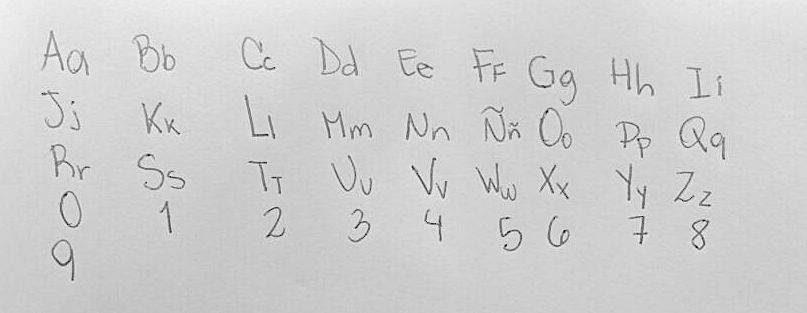 Aa Bb Cc Dd Ee Ff Gg Hh Ii
Jj Kk Ll Mm Nn Ññ Oo Pp Qq
Rr Ss Tt Uu Vv Ww Xx Yy Zz
0 1 2 3 4 5 6 7 8
9